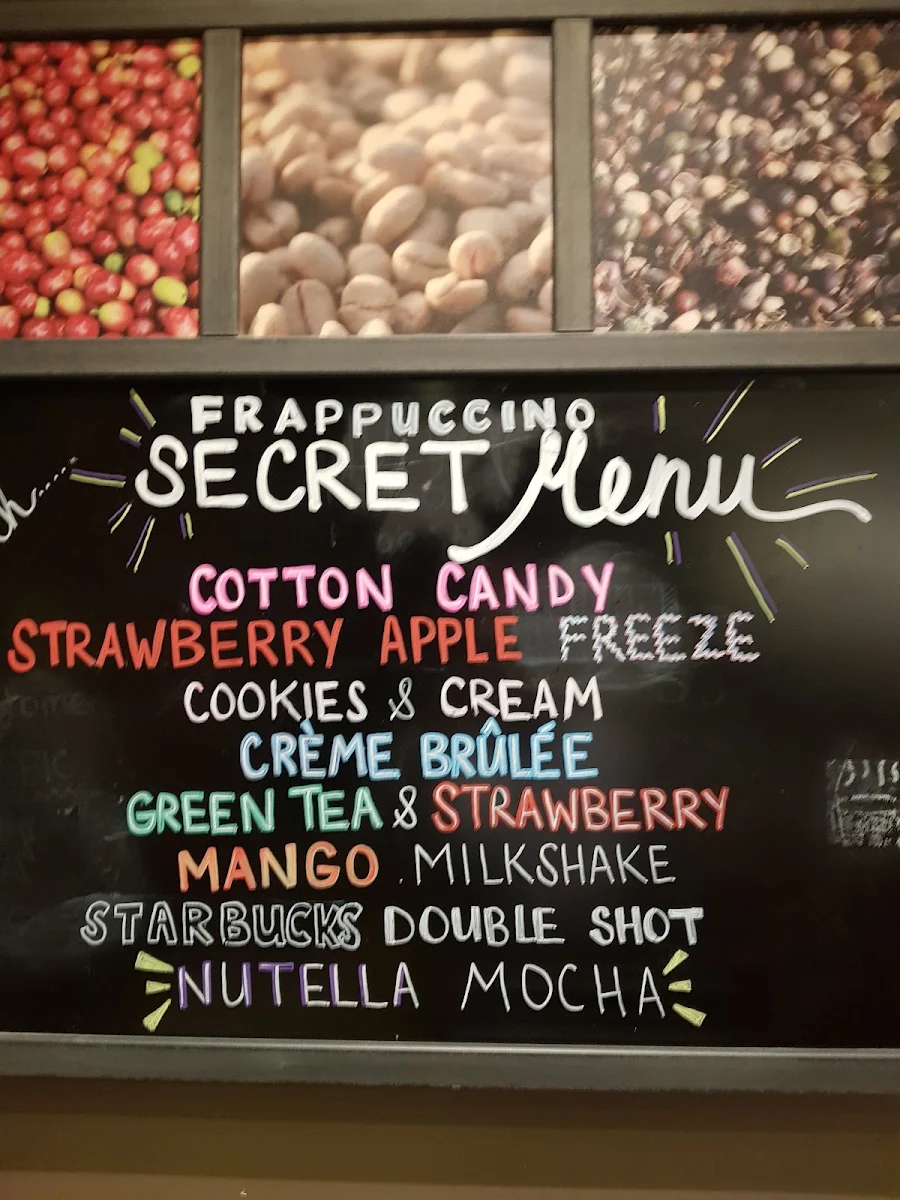 FRAPPUCCINO
SECRET Menu
COTTON CANDY
STRAWBERRY APPLE FREEZE
COOKIES & CREAM
CRÈME BRÛLÉE
GREEN TEA & STRAWBERRY
MANGO MILKSHAKE
STARBUCKS DOUBLE SHOT
NUTELLA MOCHA